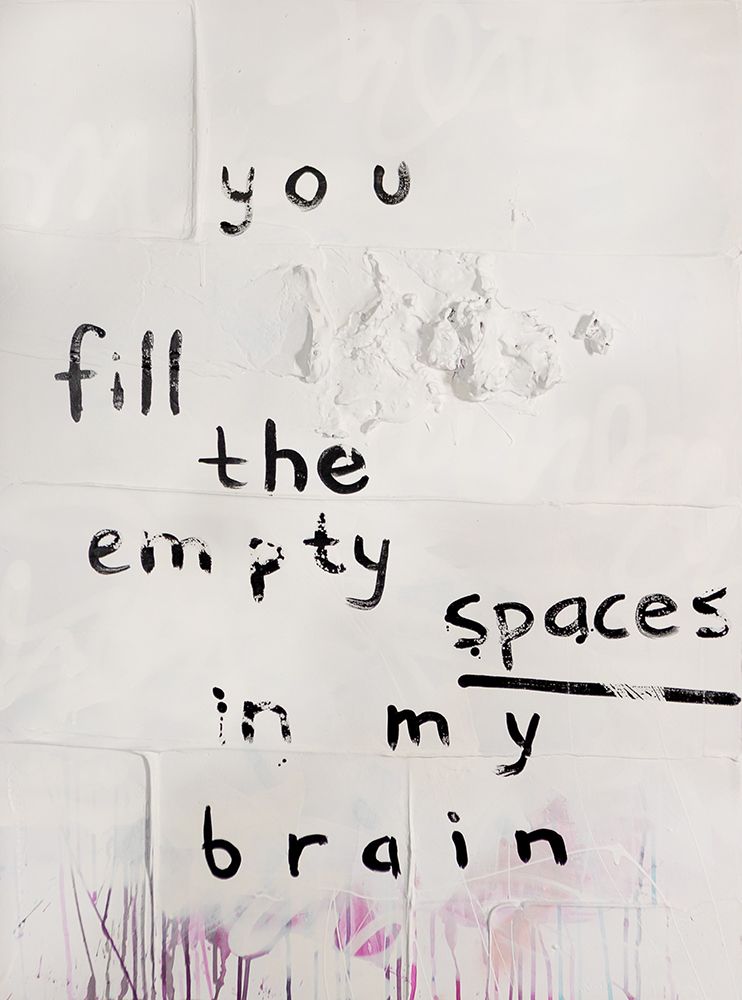 you
fill
the
empty
spaces
in my
brain